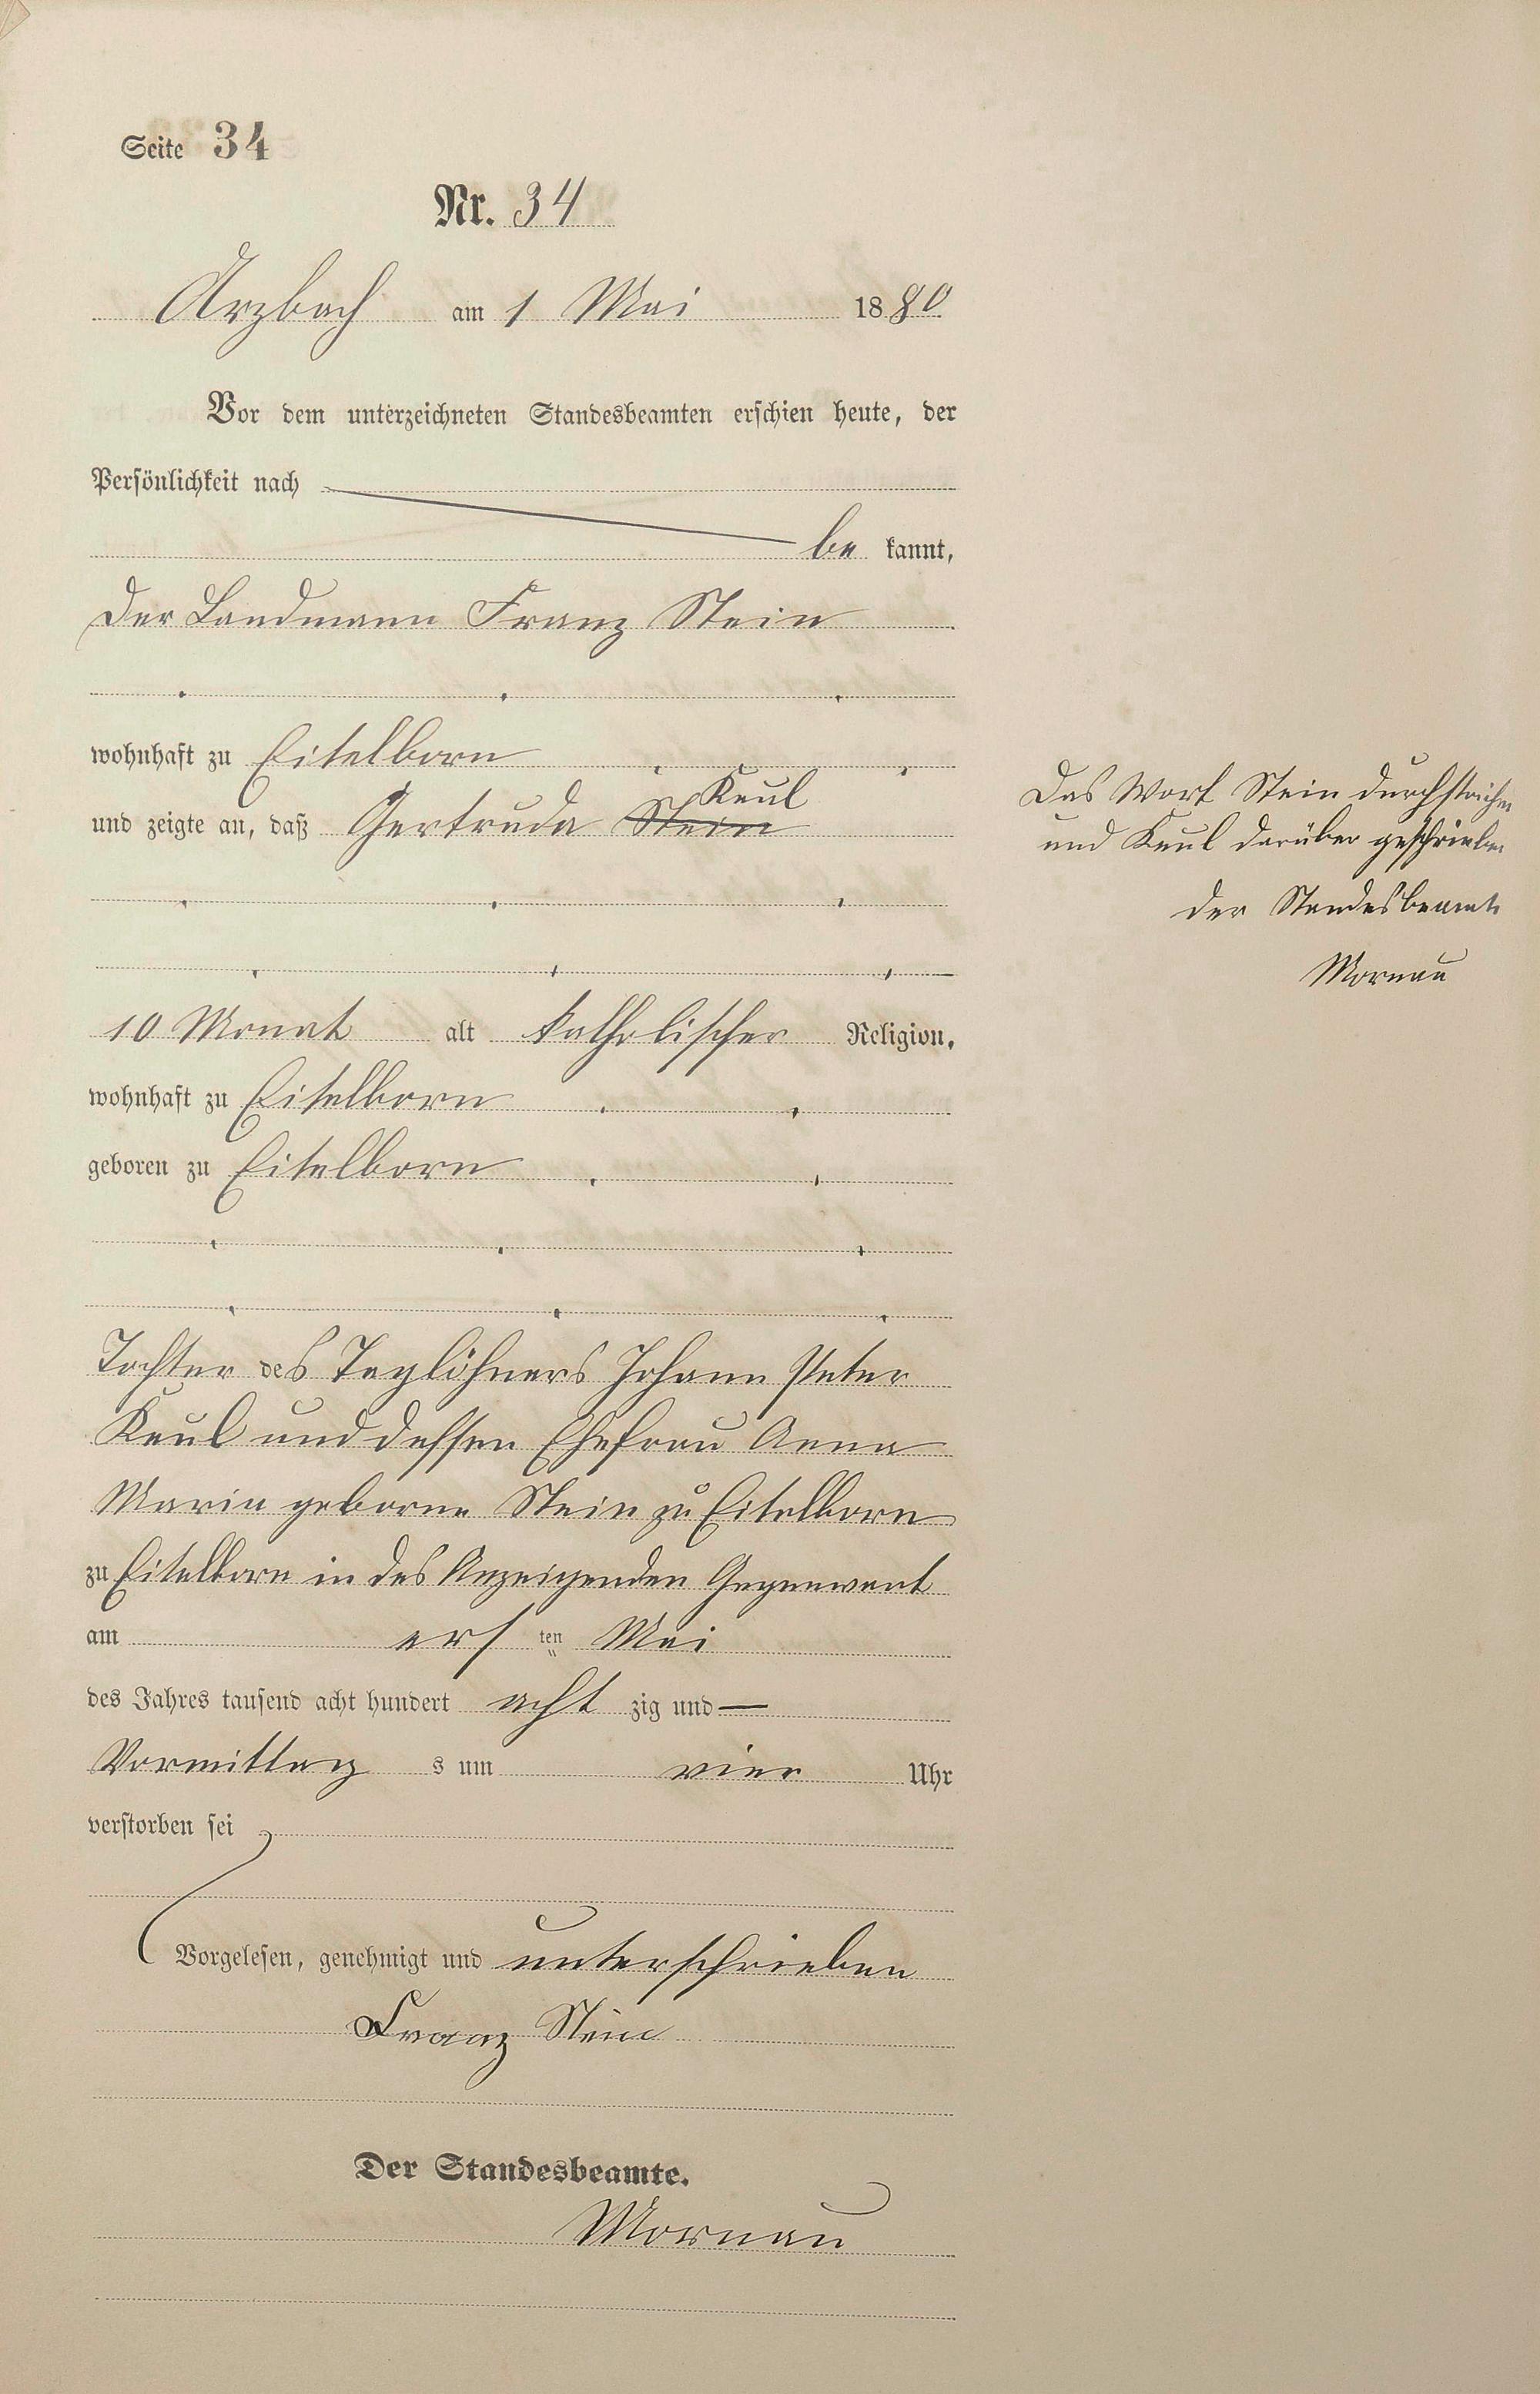 Seite 34
Nr. 34
Arzbach am 1 Mai 1880
Vor dem unterzeichneten Standesbeamten erschien heute, der
Persönlichkeit nach
be kannt,
der Landmann Franz Stein
wohnhaft zu Eitelborn
Keul
und zeigte an, daß Gertruda Stein
10 Monat alt katholischer Religion,
wohnhaft zu Eitelborn
geboren zu Eitelborn
Tochter des Taglöhners Johann Peter
Keul und dessen Ehefrau Anna
Maria geborne Stein zu Eitelborn
zu Eitelborn in des Anzeigenden Gegenwart
am ers ten Mai
des Jahres tausend acht hundert acht zig und —
Vormittag s um vier Uhr
verstorben sei
Vorgelesen, genehmigt und unterschrieben
Franz Stein
Der Standesbeamte.
Mornau
Das Wort Stein durchstrichen
und Keul darüber geschrieben
der Standesbeamte
Mornau